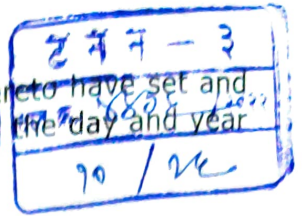 ट न न - ३
reto have set and
the day and year
१० / २८